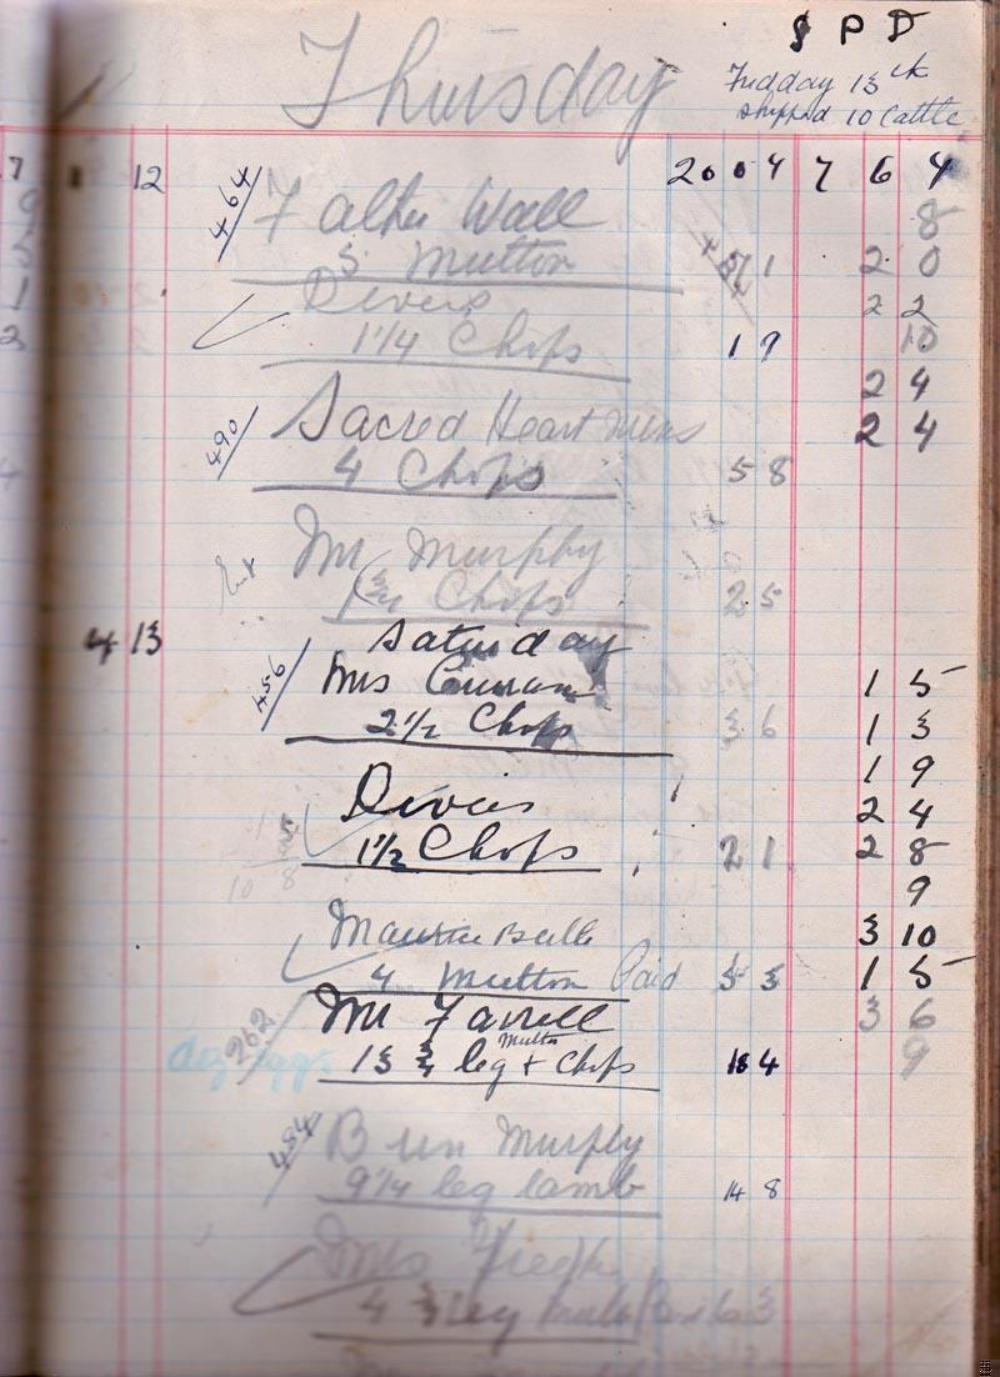 £ P D
Thursday
Fridday 13th
shipped 10 Cattle
12 464 Father Wall 20 0 4 7 6 4
8
5 Mutton 1 2 0
Divers 2 2
1 1/4 Chops 1 9 10
2 4
490 Sacred Heart Nuns 2 4
4 Chops 5 8
Mr Murphy
Chops 2 5
4 13 Saturday
456 Mrs Curran 1 5
2 1/2 Chops 3 6 1 3
1 9
Divers 2 4
1 1/2 Chops 2 1 2 8
10 8 9
Maurice 3 10
4 Mutton Paid 5 3 1 5
Mr Farrell 3 6
262 13 3/4 leg + Chops Mutton 18 4 9
484 Bren Murphy
9 1/4 leg lamb 14 8
Mrs
4 3/4 leg